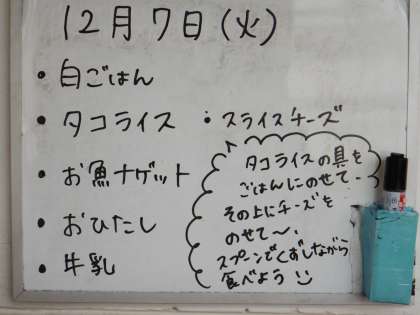 12月7日(火)
・白ごはん
・タコライス ・スライスチーズ
・お魚ナゲット
・おひたし
・牛乳
タコライスの具を
ごはんにのせて〜
その上にチーズを
のせて〜、
スプーンでくずしながら
食べよう